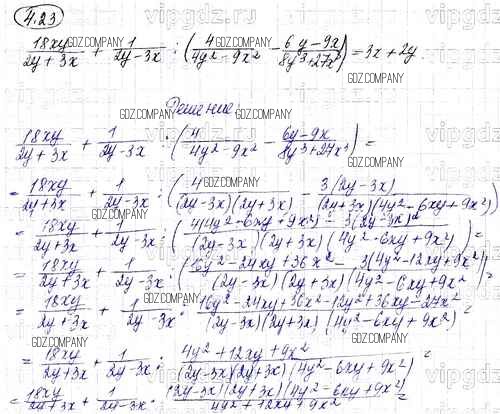 4.23
18xy/(2y + 3x) + 1/(2y - 3x) : (4/(4y² - 9x²) - (6y - 9x)/(8y³ + 27x³)) = 3x + 2y.
Решение:
18xy/(2y + 3x) + 1/(2y - 3x) : (4/(4y² - 9x²) - (6y - 9x)/(8y³ + 27x³)) =
= 18xy/(2y + 3x) + 1/(2y - 3x) : (4/((2y - 3x)(2y + 3x)) - 3(2y - 3x)/((2y + 3x)(4y² - 6xy + 9x²)) =
= 18xy/(2y + 3x) + 1/(2y - 3x) : (4(4y² - 6xy + 9x²) - 3(2y - 3x)²/((2y - 3x)(2y + 3x)(4y² - 6xy + 9x²)) =
= 18xy/(2y + 3x) + 1/(2y - 3x) : (16y² - 24xy + 36x² - 3(4y² - 12xy + 9x²)/((2y - 3x)(2y + 3x)(4y² - 6xy + 9x²)) =
= 18xy/(2y + 3x) + 1/(2y - 3x) : (16y² - 24xy + 36x² - 12y² + 36xy - 27x²)/((2y - 3x)(2y + 3x)(4y² - 6xy + 9x²)) =
= 18xy/(2y + 3x) + 1/(2y - 3x) : (4y² + 12xy + 9x²)/((2y - 3x)(2y + 3x)(4y² - 6xy + 9x²)) =
= 18xy/(2y + 3x) + 1/(2y - 3x) : (2y - 3x)(2y + 3x)(4y² - 6xy + 9x²)/(4y² + 12xy + 9x²) =
GDZ.COMPANY
vipgdz.ru